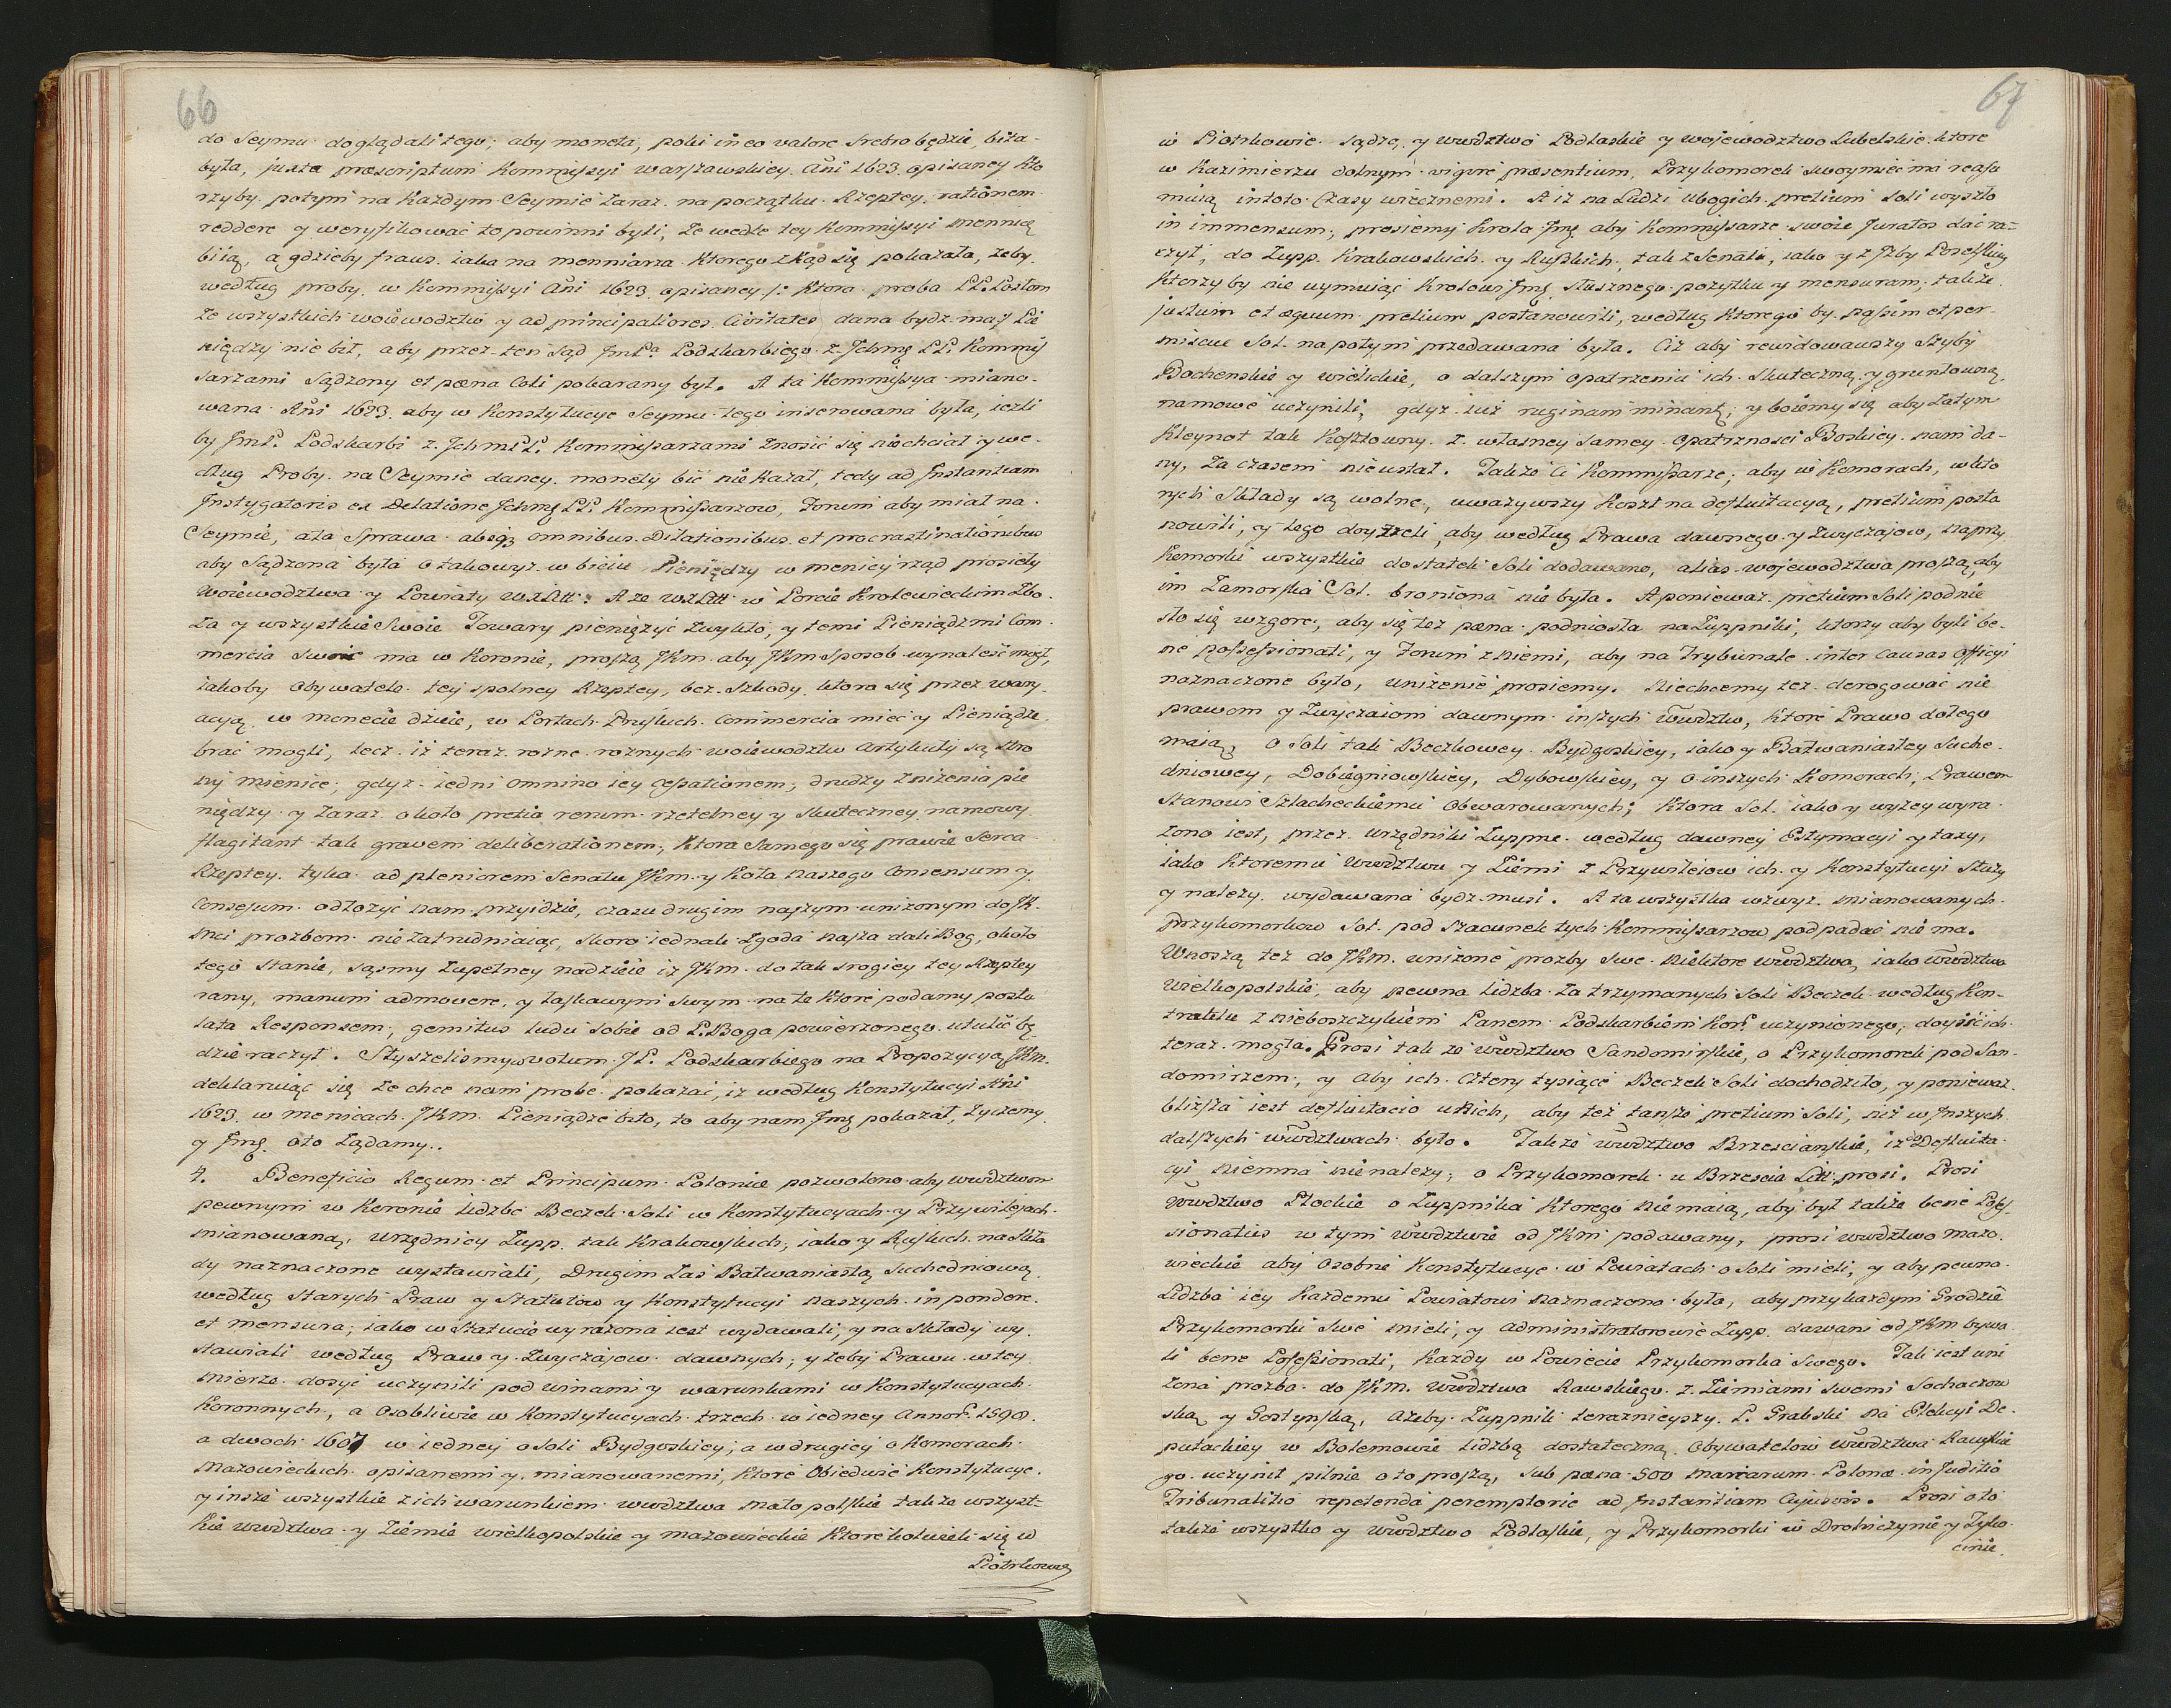 66
do Seymu doglądali tego; aby moneta, poki in eo valore srebro będzie, bita
była, juxta præscriptum Kommissyi warszawskiey Añi 1623. opisaney Kto
rzyby potym na Każdym Seymie zaraz na początku Rzeptey, rationem
reddere y weryfikować to powinni byli, że wedle tey Kommissyi mennicą
biią, a gdzieby fraus iaka na menniarza Ktorego zkąd się pokazała, żeby
według proby w Kommissyi Añi 1623. opisaney /: Ktora proba PP. Posłom
ze wszystkich woiewodztw y ad principaliores Civitates dana bydz ma :/ Pie
niędzy nie bił, aby przez ten Sąd Jmſ Pª Podskarbiego z Jchmę PP. Kommis
sarzami Sądzony et pæna Coli pokarany był. A ta Kommissya miano-
wana Añi 1623. aby w Konstytucye Seymu tego inserowana była, iezli
by JmP. Podskarbi z JchmPP. Kommissarzami znosić się niechciał y we-
dług Proby na Seymie daney monety bić nie Kazał, tedy ad Instantiam
Instygatoris ex Delatione Jchmę PP. Kommissarzow, Forum aby miał na
Seymie, ata Sprawa absqȝ omnibus Dilationibus et procrastinationibus
aby Sądzona była o takowyż w biciu Pieniędzy w menicy rząd prosieły
Woiewodztwa y Powiaty WXLitt: A ze WXLitt w Porcie Krolewieckim Zbo-
za y wszystkie Swoie Towary pieniężyć zwykło, y temi Pieniądzmi Com-
mercia swoie ma w Koronie, proszą JKm. aby JKm sposob wynaleść mogł,
iakoby obywatele tey spolney Rzeptey, bez Szkody, ktora się przez wary-
acyą w monecie dzieie, w Portach Pruskich Commercia mieć y Pieniądze
brać mogli, lecz iż teraz rozne roznych woiewodztw Artykuły są stro
ny mienice; gdyz iedni omnino iey cessationem, drudzy zniżenia pie
niędzy y zaraz około pretia rerum rzetelney y skuteczney namowy
flagitant tak gravem deliberationem, Ktora samego się prawie Serca
Rzeptey tyka ad pleniorem Senatu JKm. y Koła Naszego Consensum y
Consessum odłozyć nam przyidzie, czasu drugim naszym unizonym do JK-
mci prozbom nie zatrudniaiąc, skoro iednak zgoda nasza dali Bog, około
tego stanie, sąsmy zupełney nadzieie iż JKm. do tak srogiey tey Rzeptey
rany, manum admovere, y łaskawym swym na te Ktore podamy postu
lata Responsem, gemitus ludu sobie od P. Boga powierzonego utulić bę
dzie raczył. Słyszelismy w votum JP. Podskarbiego na Propozycyą JKm.
deklaruiąc się że chce nam probe pokazać, iż według Konstytucyi Añi
1623. w menicach JKm. Pieniądze bito, to aby nam Jmę pokazał, życzemy
y Jmę oto żądamy..
4. Beneficio Regum et Principum Poloniæ pozwolono aby wwdztwom
pewnym w Koronie liczbę Beczek Soli w Konstytucyach y Przywilejach
mianowaną, urzędnicy Zupp. tak Krakowskich, iako y Ruskich na Skła
dy naznaczone wystawiali, Drugim zaś Bałwaniastą Suchedniową
według starych Praw y Statutow y Konstytucyi naszych in pondere
et mensura, iako w Statucie wyrażona iest wydawali, y na Składy wy-
stawiali według Praw y zwyczajow dawnych, y żeby Prawu w tey
mierze dosyć uczynili pod winami y warunkami w Konstytucyach
Koronnych, a osobliwie w Konstytucyach trzech w iedney Annoſ. 1590.
a dwoch 1607 w iedney o Soli Bydgoskiey, a w drugiey o Komorach
Mazowieckich opisanemi y mianowanemi, Ktore obiedwie Konstytucye
y insze wszystkie z ich warunkiem wwdztwa małopolskie także wszyst-
kie wwdztwa y Ziemie wielkopolskie y mazowieckie Ktorekolwiek się w
Piotrkowie
67
w Piotrkowie sądzą, y wwdztwo Podlaskie y wojewodztwo Lubelskie ktore
w Kazimierzu dolnym vigore præsentium, Przykomorek swoy mieć ma reassu
muią in toto Czasy wiecznemi. A iż na Ludzi ubogich pretium Soli wyszło
in immensum, prosiemy Krola Jmę aby Kommissarze swoie Juratos dać ra-
czył, do Zupp Krakowskich y Ruskich, tak z Senatu, iako y z Izby Poselskiey
Ktorzy by nie uymuiąc Krolowi Jmę słusznego pożytku y mensuram, także
justum et æquum pretium postanowili, według Ktorego by passim et per-
miscue Sol napotym przedawana była. Ciż aby rewidowawszy Szyby
Bochenskie y wielickie, o dalszym opatrzeniu ich skuteczną y gruntowną
namowę uczynili, gdyż iuż ruginam minantę; y boiemy się aby zatym
Kleynot tak Kosztowny z własney samey opatrznosci Boskiey nam da-
ny, za czasem nieustał. Także Ci Kommissarze, aby w Komorach, w kto
rych Składy są wolne, uważywszy Koszt na defluitacyą, pretium posta
nowili, y tego doyzreli, aby według Prawa dawnego y zwyczajow, naprzy
Komorki wszystkie dostatek Soli dodawano, alias wojewodztwa proszą, aby
im Zamorska Sol broniona nie była. A ponieważ pretium Soli podnie
sło się wzgorę, aby się też pæna podniosła na Zuppniki, ktorzy aby byli be-
ne possessionati, y Forum z niemi, aby na Trybunale inter Causas Officij
naznaczone było, uniżenie prosiemy. Niechcemy też derogować nic
prawom y zwyczaiom dawnym inszych wwdztw, Ktore Prawo do tego
maią, o Soli tak Beczkowey Bydgoskiey, iako y Bałwaniastey Suche-
dniowey, Dobiegniowskiey, Dybowskiey, y o inszych Komorach, Prawem
Stanowi Szlacheckiemu obwarowanych; Ktora Sol iako y wyzey wyra
żono iest, przez urzędniki Zuppne według dawney Estymacyi y taxy,
iako Ktoremu Wwdztwu y Ziemi z Przywilejow ich y Konstytucyi Służy
y należy wydawana bydz musi. A ta wszystka wzwyż mianowanych
Przykomorkow Sol pod szacunek tych Kommissarzow podpadać nie ma.
Wnoszą też do JKm. uniżone prozby swe niektore wwdztwa, iako wwdztwa
wielkopolskie, aby pewna liczba zatrzymanych Soli Beczek według Kon-
traktu z nieboszczykiem Panem Podskarbiem Korſ uczynionego, doyść ich
teraz mogła. Prosi także wwdztwo Sandomirskie, o Przykomorek pod San-
domirzem, y aby ich cztery tysiące Beczek Soli dochodziło, y ponieważ
bliższa iest defluitacio u Nich, aby też tansze pretium Soli, niż w Inszych
dalszych wwdztwach było. Także wwdztwo Brzescianskie, iż do Defluita-
cyi Niemna nie należy, o Przykomorek u Brzescia Litt. prosi. Prosi
Wwdztwo Płockie o Zuppnika Ktorego nie maią, aby był także bene Poses-
sionatus w tym wwdztwie od JKm podawany, prosi wwdztwo mazo-
wieckie aby osobne Konstytucye w Powiatach o Soli mieli, y aby pewna
Lidzba iey Każdemu Powiatowi naznaczona była, aby przy każdym Grodzie
Przykomorki swe mieli, y Administratorowie Zupp dawani od JKm bywa
li bene Possessionati, Każdy w Powiecie Przykomorka swego. Tak iest uni
żona prozba do JKm. wwdztwa Rawskiego z Ziemiami swemi Sochaczew
ską y Gostynską, ażeby Zuppnik teraznieyszy P. Grabski na Elekcyi De-
putackiey w Bolemowie lidzbą dostateczną obywatelow wwdztwa Rawskie
go uczynił pilnie o to proszą, sub pæna 500 marcarum Polonæ in Juditio
Tribunalitio repetenda peremptorie ad Instantiam Cujusvis. Prosi o to
także wszystko y wwdztwo Podlaskie, y Przykomorki w Drohiczynie y Tyko-
cinie.